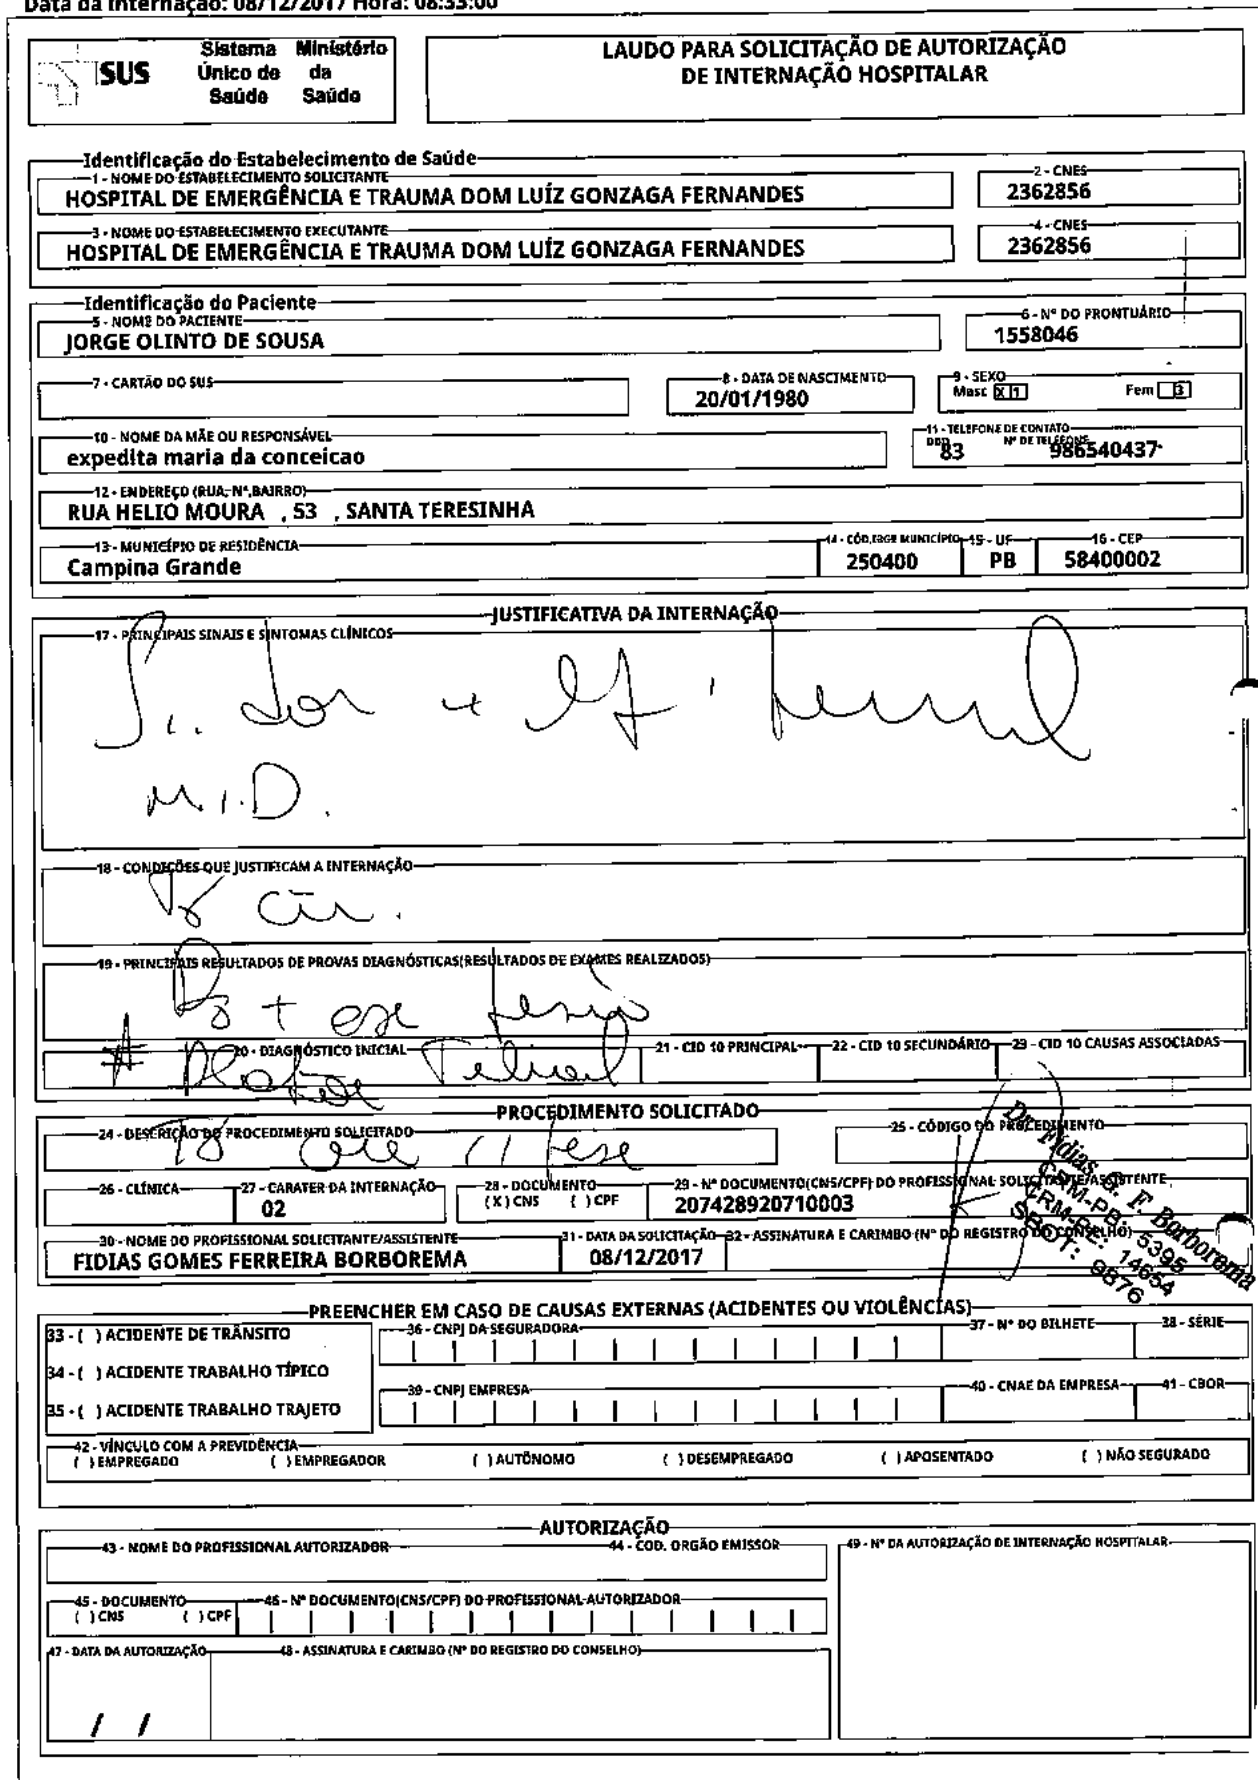 Data da Internação: 08/12/2017 Hora: 08:33:00
SUS
Sistema Único de Saúde
Ministério da Saúde
LAUDO PARA SOLICITAÇÃO DE AUTORIZAÇÃO
DE INTERNAÇÃO HOSPITALAR
Identificação do Estabelecimento de Saúde
1 - NOME DO ESTABELECIMENTO SOLICITANTE
HOSPITAL DE EMERGÊNCIA E TRAUMA DOM LUÍZ GONZAGA FERNANDES
2 - CNES
2362856
3 - NOME DO ESTABELECIMENTO EXECUTANTE
HOSPITAL DE EMERGÊNCIA E TRAUMA DOM LUÍZ GONZAGA FERNANDES
4 - CNES
2362856
Identificação do Paciente
5 - NOME DO PACIENTE
JORGE OLINTO DE SOUSA
6 - Nº DO PRONTUÁRIO
1558046
7 - CARTÃO DO SUS
8 - DATA DE NASCIMENTO
20/01/1980
9 - SEXO
Masc X 1 Fem 3
10 - NOME DA MÃE OU RESPONSÁVEL
expedita maria da conceicao
11 - TELEFONE DE CONTATO
DDD Nº DE TELEFONE
83 986540437
12 - ENDEREÇO (RUA, Nº,BAIRRO)
RUA HELIO MOURA , 53 , SANTA TERESINHA
13 - MUNICÍPIO DE RESIDÊNCIA
Campina Grande
14 - CÓD.IBGE MUNICÍPIO
250400
15 - UF
PB
16 - CEP
58400002
JUSTIFICATIVA DA INTERNAÇÃO
17 - PRINCIPAIS SINAIS E SINTOMAS CLÍNICOS
dor +
M.I.D.
18 - CONDIÇÕES QUE JUSTIFICAM A INTERNAÇÃO
19 - PRINCIPAIS RESULTADOS DE PROVAS DIAGNÓSTICAS(RESULTADOS DE EXAMES REALIZADOS)
20 - DIAGNÓSTICO INICIAL
21 - CID 10 PRINCIPAL
22 - CID 10 SECUNDÁRIO
23 - CID 10 CAUSAS ASSOCIADAS
PROCEDIMENTO SOLICITADO
24 - DESCRIÇÃO DO PROCEDIMENTO SOLICITADO
25 - CÓDIGO DO PROCEDIMENTO
26 - CLÍNICA
27 - CARATER DA INTERNAÇÃO
02
28 - DOCUMENTO
(X) CNS ( ) CPF
29 - Nº DOCUMENTO(CNS/CPF) DO PROFISSIONAL SOLICITANTE/ASSISTENTE
207428920710003
30 - NOME DO PROFISSIONAL SOLICITANTE/ASSISTENTE
FIDIAS GOMES FERREIRA BORBOREMA
31 - DATA DA SOLICITAÇÃO
08/12/2017
32 - ASSINATURA E CARIMBO (Nº DO REGISTRO DO CONSELHO)
Dr. Fidias G. F. Borborema
CRM-PB: 5395
CRM-PE: 14654
SBOT: 9876
PREENCHER EM CASO DE CAUSAS EXTERNAS (ACIDENTES OU VIOLÊNCIAS)
33 - ( ) ACIDENTE DE TRÂNSITO
34 - ( ) ACIDENTE TRABALHO TÍPICO
35 - ( ) ACIDENTE TRABALHO TRAJETO
36 - CNPJ DA SEGURADORA
37 - Nº DO BILHETE
38 - SÉRIE
39 - CNPJ EMPRESA
40 - CNAE DA EMPRESA
41 - CBOR
42 - VÍNCULO COM A PREVIDÊNCIA
( ) EMPREGADO ( ) EMPREGADOR ( ) AUTÔNOMO ( ) DESEMPREGADO ( ) APOSENTADO ( ) NÃO SEGURADO
AUTORIZAÇÃO
43 - NOME DO PROFISSIONAL AUTORIZADOR
44 - COD. ORGÃO EMISSOR
49 - Nº DA AUTORIZAÇÃO DE INTERNAÇÃO HOSPITALAR
45 - DOCUMENTO
( ) CNS ( ) CPF
46 - Nº DOCUMENTO(CNS/CPF) DO PROFISSIONAL AUTORIZADOR
47 - DATA DA AUTORIZAÇÃO
/ /
48 - ASSINATURA E CARIMBO (Nº DO REGISTRO DO CONSELHO)